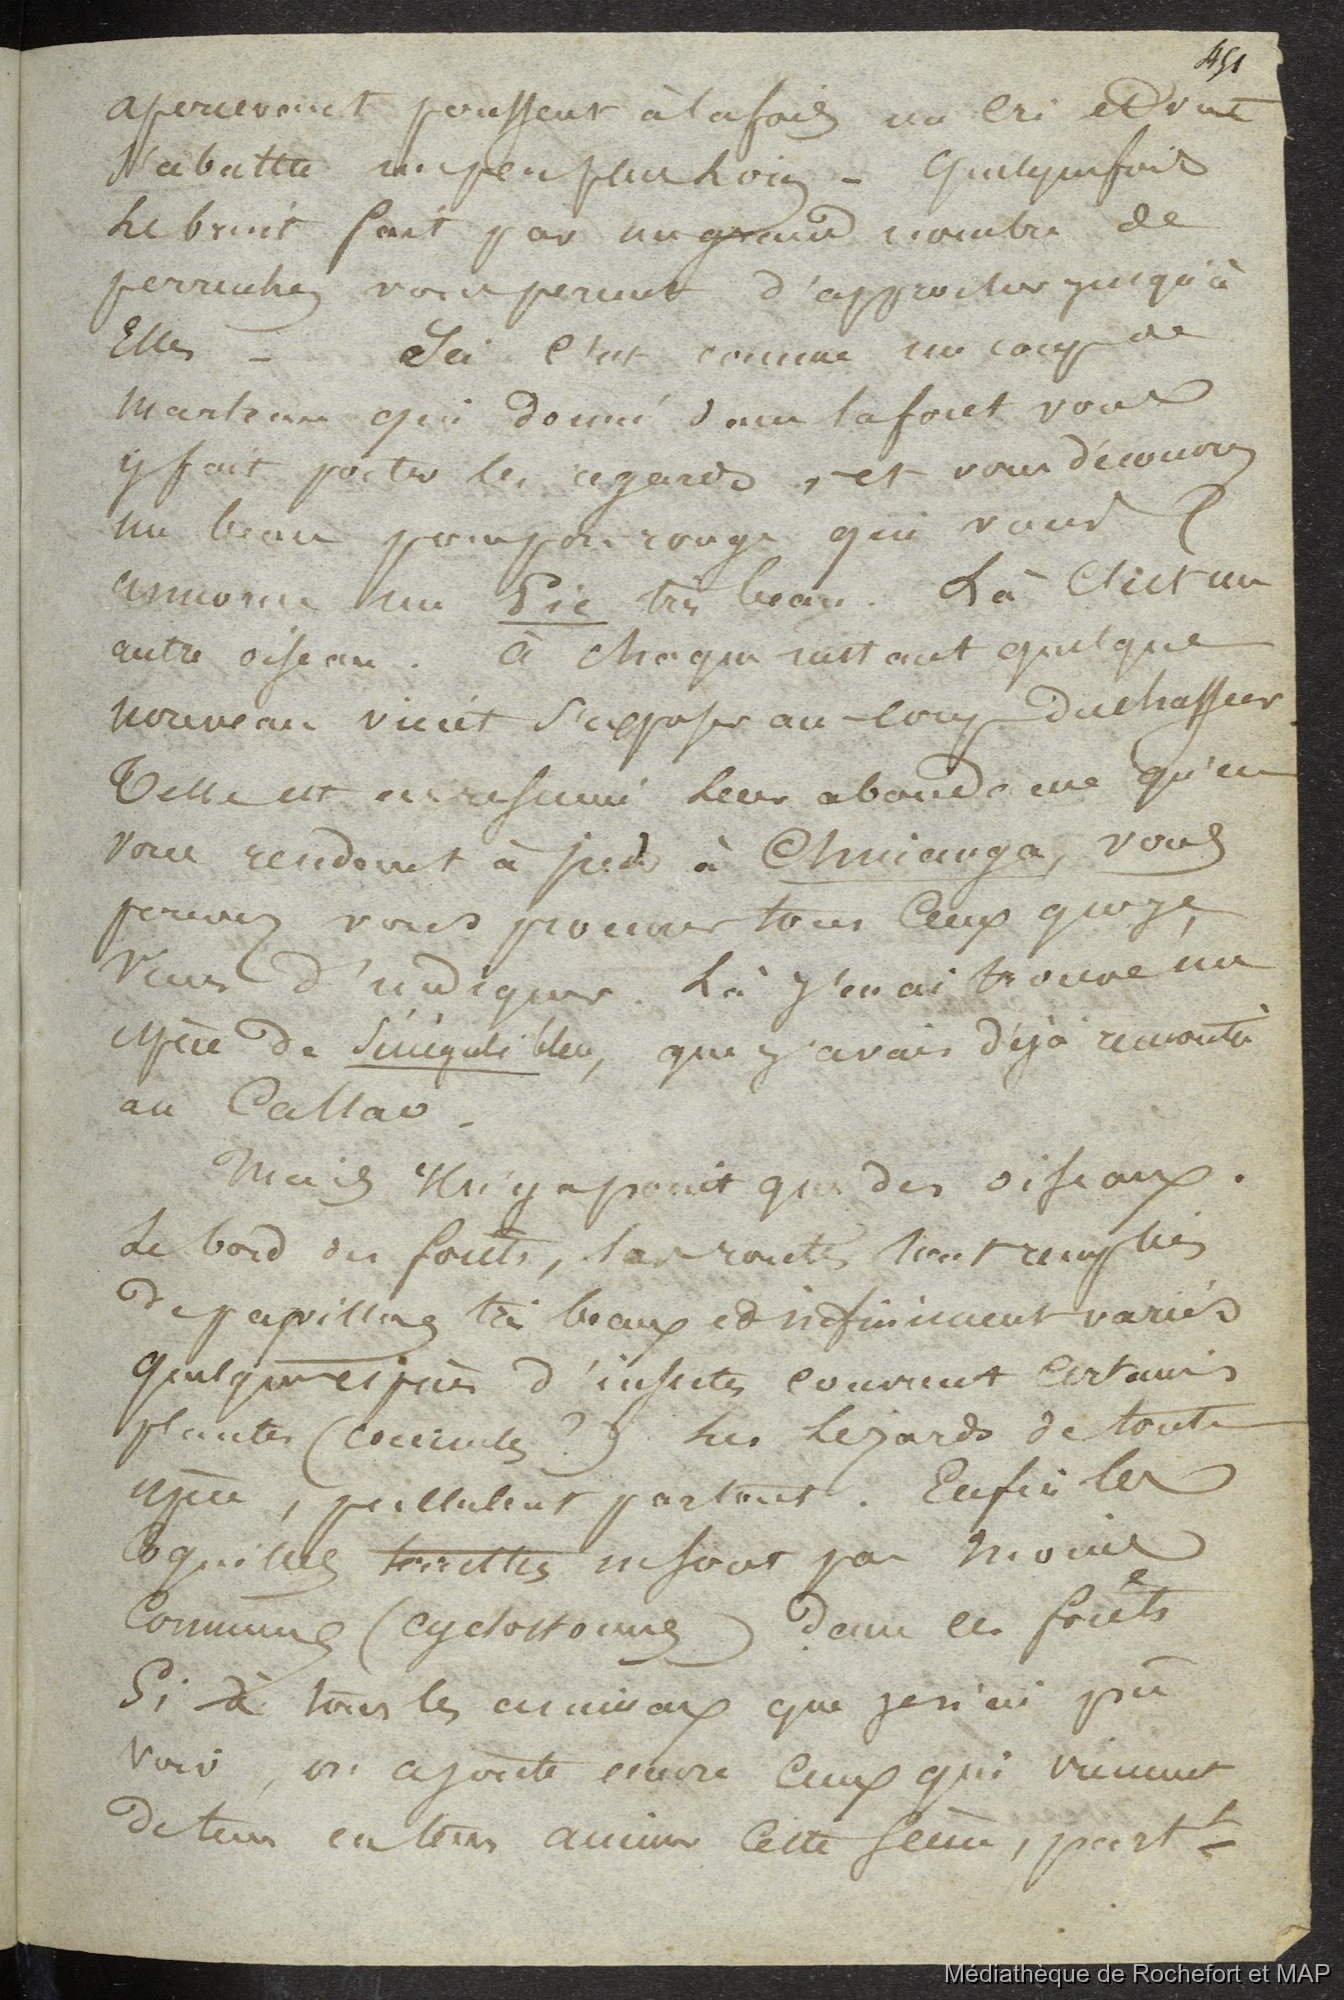 451
apercevant poussent à la fois un cri et vont
s'abattre un peu plus loin – quelquefois
le bruit fait par un grand nombre de
perruches vous permet d'approcher jusqu'à
Elles – Ici c'est comme un coup de
marteau qui donné dans la foret vous
y fait porter les regards, et vous découvrez
un beau pompon rouge qui vous
annonce un Pic très beau. Là c'est un
autre oiseau. à chaque instant quelque
nouveau vient s'exposer au coup du chasseur.
Telle est en resumé leur abondance qu'en
vous rendant à pied à vous
pouvez vous procurer tous ceux que je
viens d'indiquer. Là j'en ai trouvé une
espèce de Sénégali bleu, que j'avais déjà rencontré
au Callao –
Mais il n'y a point que des oiseaux.
Le bord des forêts, les routes sont remplies
de papillons très beaux et infiniment variés
quelques espèces d'insectes couvrent certaines
plantes ( ?) Les Lezards de toute
espèce, pullulent partout. Enfin les
Coquilles terrestres ne sont pas moins
communes (cyclostomes) dans ces forêts
Si à tous les animaux que je n'ai pu
voir, on ajoute encore ceux qui viennent
de tems en tems animer cette scène, part